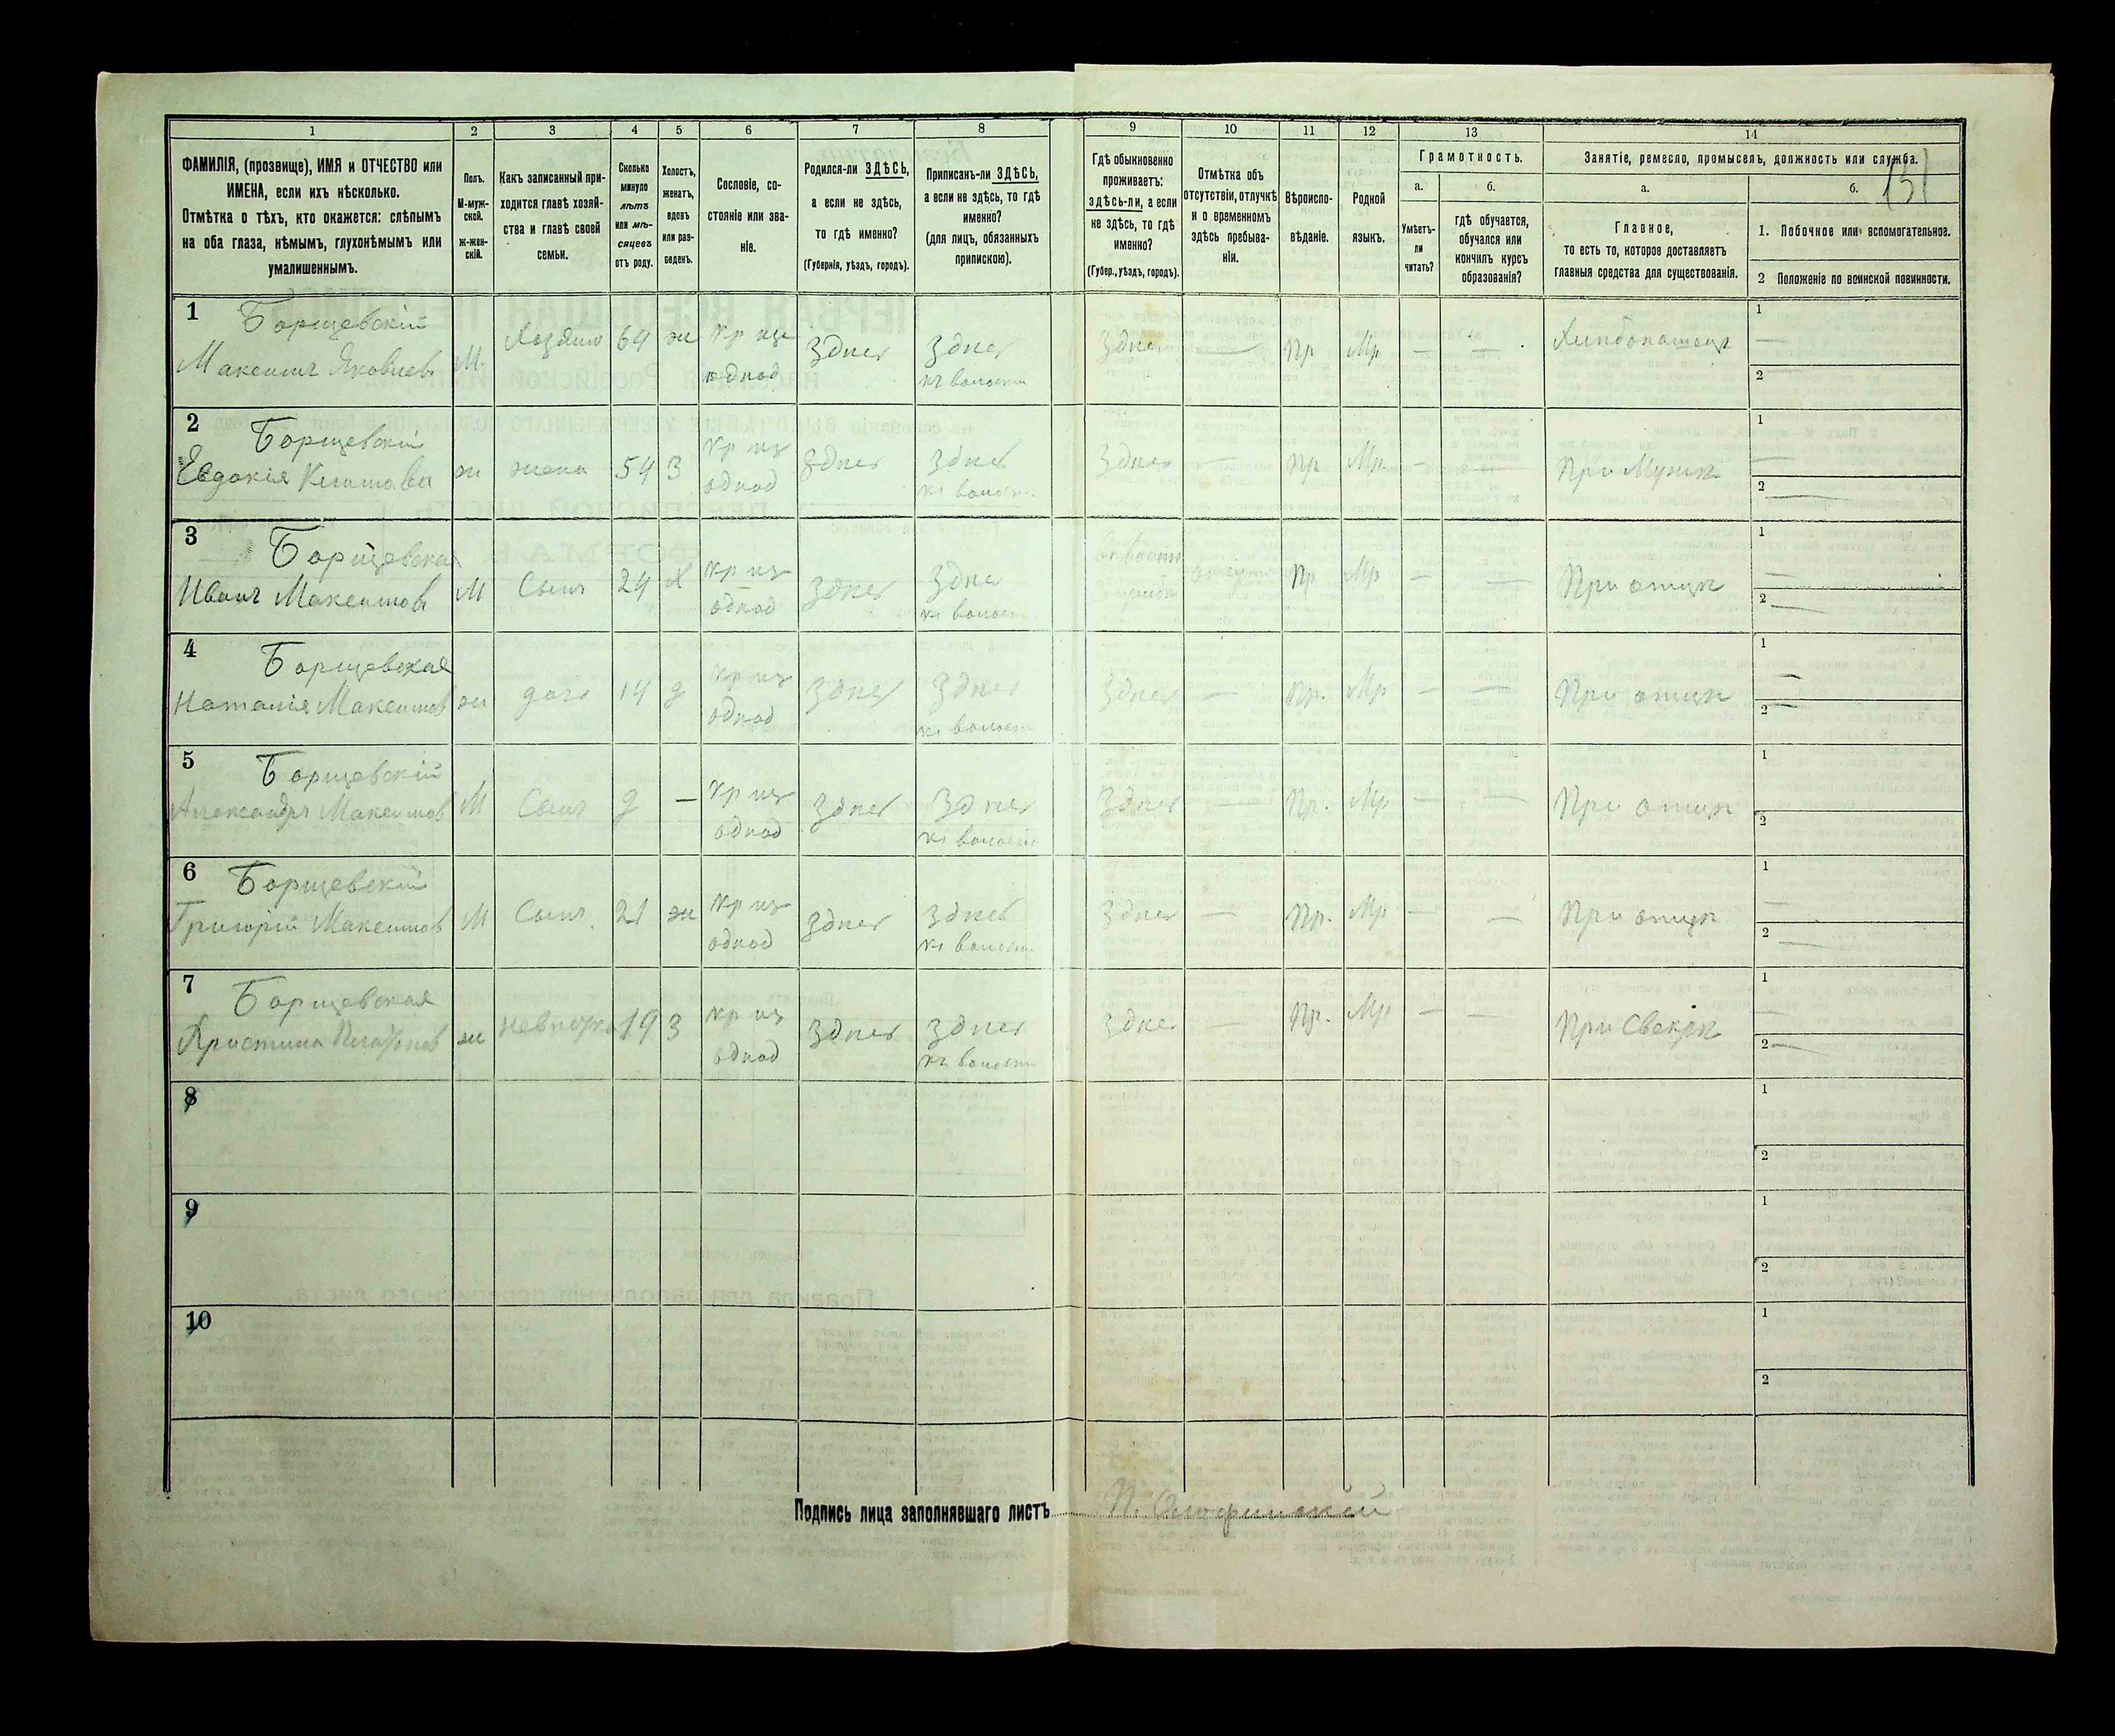 1 2 3 4 5 6 7 8 9 10 11 12 13 14
ФАМИЛІЯ, (прозвище), ИМЯ и ОТЧЕСТВО или
ИМЕНА, если ихъ нѣсколько.
Отмѣтка о тѣхъ, кто окажется: слѣпымъ
на оба глаза, нѣмымъ, глухонѣмымъ или
умалишеннымъ.
Полъ.
М-муж-
ской.
ж-жен-
скій.
Какъ записанный при-
ходится главѣ хозяй-
ства и главѣ своей
семьи.
Сколько
минуло
лѣтъ
или мѣ-
сяцевъ
отъ роду.
Холостъ,
женатъ,
вдовъ
или раз-
веденъ.
Сословіе, со-
стояніе или зва-
ніе.
Родился-ли ЗДѢСЬ,
а если не здѣсь,
то гдѣ именно?
(Губернія, уѣздъ, городъ).
Приписанъ-ли ЗДѢСЬ,
а если не здѣсь, то гдѣ
именно?
(для лицъ, обязанныхъ
припискою).
Гдѣ обыкновенно
проживаетъ:
здѣсь-ли, а если
не здѣсь, то гдѣ
именно?
(Губер., уѣздъ, городъ).
Отмѣтка объ
отсутствіи, отлучкѣ
и о временномъ
здѣсь пребыва-
ніи.
Вѣроиспо-
вѣданіе.
Родной
языкъ.
Грамотность.
а.
Умѣетъ-
ли
читать?
б.
гдѣ обучается,
обучался или
кончилъ курсъ
образованія?
Занятіе, ремесло, промыселъ, должность или служба.
а.
Главное,
то есть то, которое доставляетъ
главныя средства для существованія.
б.
131
1. Побочное или вспомогательное.
2 Положеніе по воинской повинности.
1 Борщевскій
Максимъ Яковлевъ М. Хозяинъ 64 ж кр из однод здѣсь здѣсь къ волости здѣсь — Пр Мр — — Хлѣбопашецъ 1 — 2
2 Борщевскій
Евдокія ж жена 54 З кр из однод здѣсь здѣсь къ волости здѣсь — Пр Мр — — При Мужѣ 1 — 2 —
3 Борщевская
Иванъ Максимовъ М Сынъ 24 Х кр из однод здѣсь здѣсь къ волости Пр Мр — — При отцѣ 1 — 2 —
4 Борщевская
Наталія Максимов ж дочь 14 д кр из однод здѣсь здѣсь къ волости здѣсь — Пр. Мр — — При отцѣ 1 — 2 —
5 Борщевскій
Александръ Максимов М Сынъ 9 — кр из однод здѣсь здѣсь къ волости здѣсь — Пр. Мр — — При отцѣ 1 2
6 Борщевскій
Григорій Максимов М Сынъ 21 ж кр из однод здѣсь здѣсь къ волости здѣсь — Пр. Мр — — При отцѣ 1 — 2 —
7 Борщевская
Христина ж невѣстка 19 З кр из однод здѣсь здѣсь къ волости здѣсь — Пр. Мр — — При Свекрѣ 1 — 2 —
8 1 2
9 1 2
10 1 2
Подпись лица заполнявшаго листъ